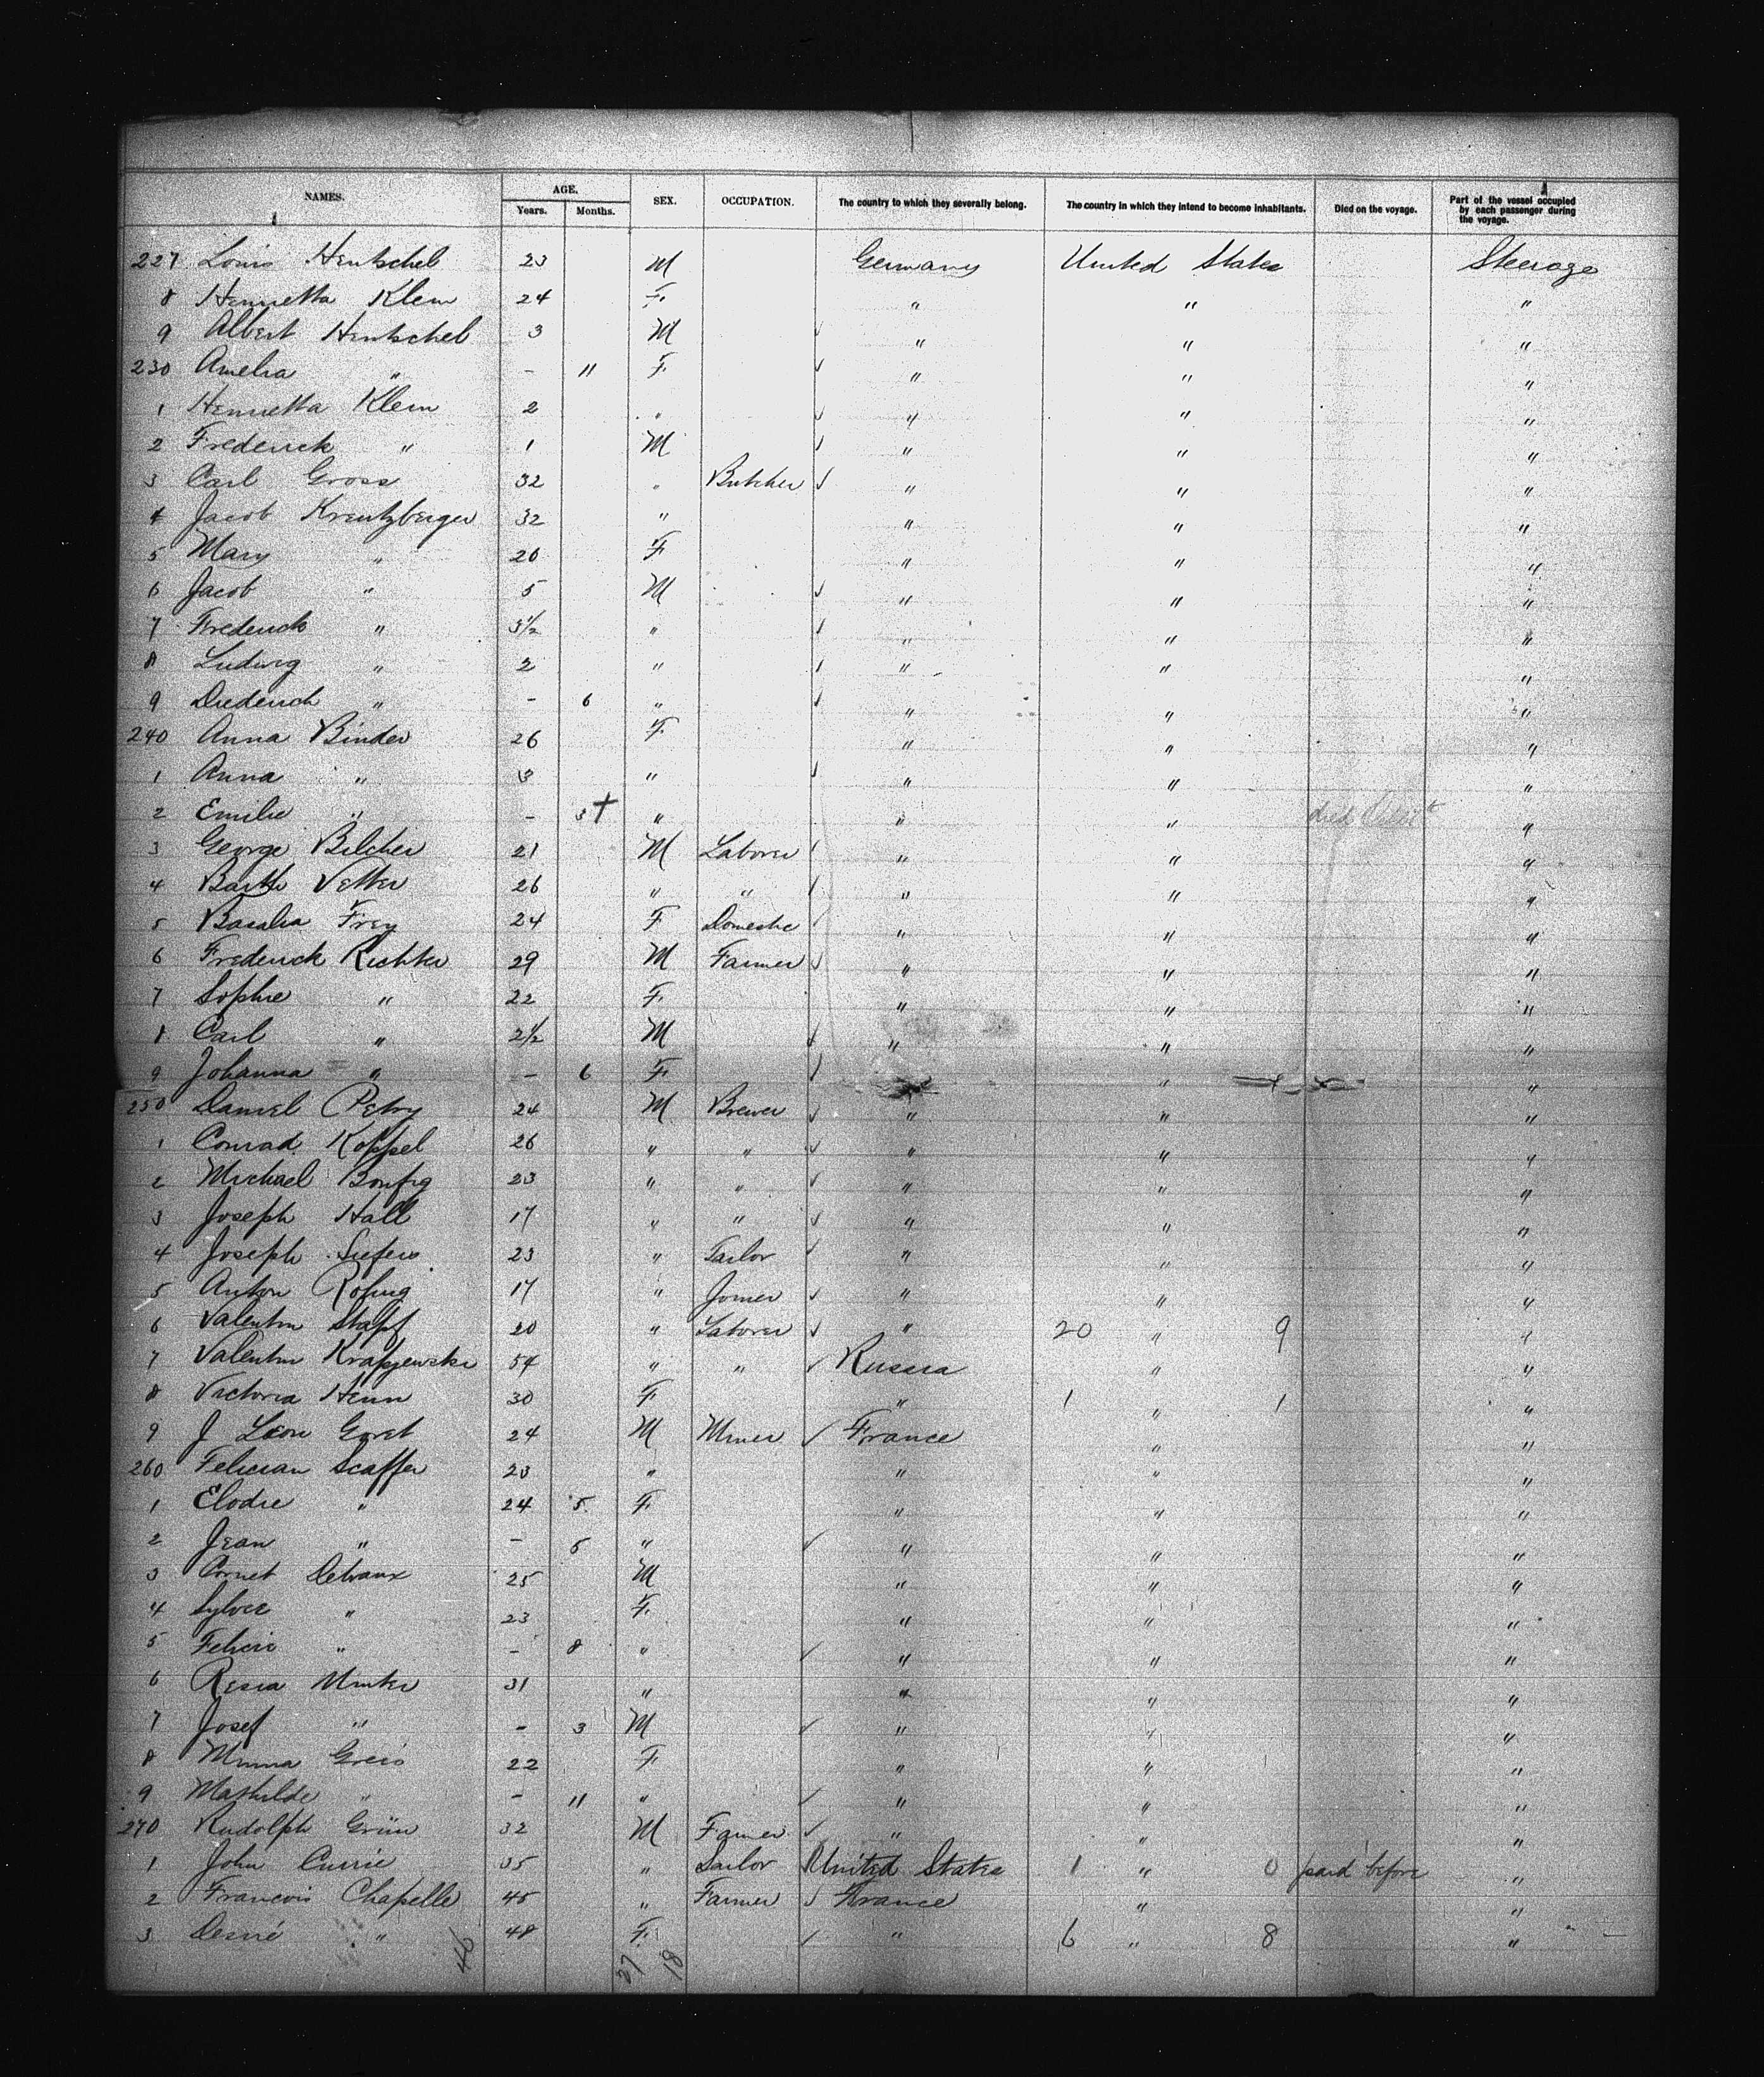 NAMES. AGE. SEX. OCCUPATION. The country to which they severally belong. The country in which they intend to become inhabitants. Died on the voyage. Part of the vessel occupied by each passenger during the voyage.
Years. Months.
227 Louis Hentschel 23 M Germany United States Steerage
8 Henrietta Klein 24 F. " " "
9 Albert Hentschel 3 M " " "
230 Amelia " - 11 F " " "
1 Henrietta Klein 2 " " " "
2 Frederick " 1 M " " "
3 Carl Gross 32 " Butcher " " "
4 Jacob Kreutzberger 32 " " " "
5 Mary " 26 F " " "
6 Jacob " 5 M " " "
7 Frederick " 3½ " " " "
8 Ludwig " 2 " " " "
9 Diederich " - 6 " " " "
240 Anna Binder 26 F " " "
1 Anna " 3 " " " "
2 Emilie " - 3 † " " " died "
3 George Bilcher 21 M Laborer " " "
4 Barth Vetter 26 " " " " "
5 Basalia Frey 24 F Domestic " " "
6 Frederick Richter 29 M Farmer " " "
7 Sophie " 22 F. " " "
8 Carl " 2½ M " " "
9 Johanna " - 6 F " "
250 Daniel Petry 24 M Brewer " " "
1 Conrad Koppel 26 " " " " "
2 Michael Bonfig 23 " " " " "
3 Joseph Hall 17 " " " " "
4 Joseph Siefers 23 " Tailor " " "
5 Anton Rofing 17 " Joiner " " "
6 Valentin Stapf 20 " Laborer " 20 " 9 "
7 Valentin Krapjewski 54 " " Russia " "
8 Victoria Henn 30 F " 1 " 1 "
9 J Leon Goret 24 M Miner France " "
260 Felician Scaffer 23 " " " "
1 Elodie " 24 5 F " " "
2 Jean " - 5 " " " "
3 Cornet Delvaux 25 M " " "
4 Sylvee " 23 F. " " "
5 Felicie " - 8 " " " "
6 Resia Minter 31 " " " "
7 Josef " - 3 M " " "
8 Minna Greis 22 F " " "
9 Mathilde " - 11 " " " "
270 Rudolph Grün 32 M Farmer " " "
1 John Currie 35 " Sailor United States 1 " 0 paid before "
2 Francois Chapelle 45 " Farmer France " "
3 Desiré " 48 F. " 6 " 8 "
46 27 18